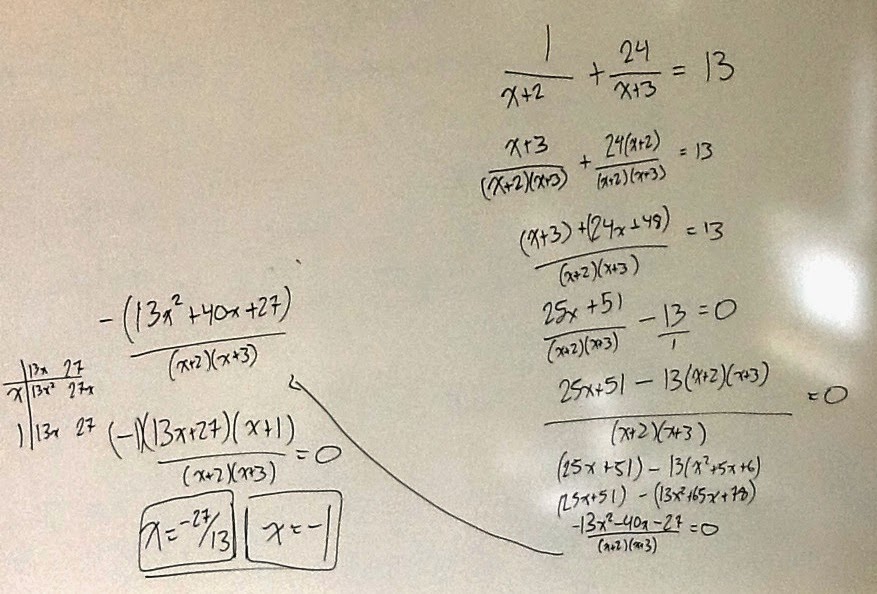 1/(x+2) + 24/(x+3) = 13
(x+3)/((x+2)(x+3)) + 24(x+2)/((x+2)(x+3)) = 13
((x+3)+(24x+48))/((x+2)(x+3)) = 13
(25x+51)/((x+2)(x+3)) - 13/1 = 0
(25x+51 - 13(x+2)(x+3))/((x+2)(x+3)) = 0
(25x+51) - 13(x²+5x+6)
(25x+51) - (13x²+65x+78)
(-13x²-40x-27)/((x+2)(x+3)) = 0
-(13x²+40x+27)/((x+2)(x+3))
13x 27
x 13x² 27x
1 13x 27
(-1)(13x+27)(x+1)/((x+2)(x+3)) = 0
x = -27/13 x = -1